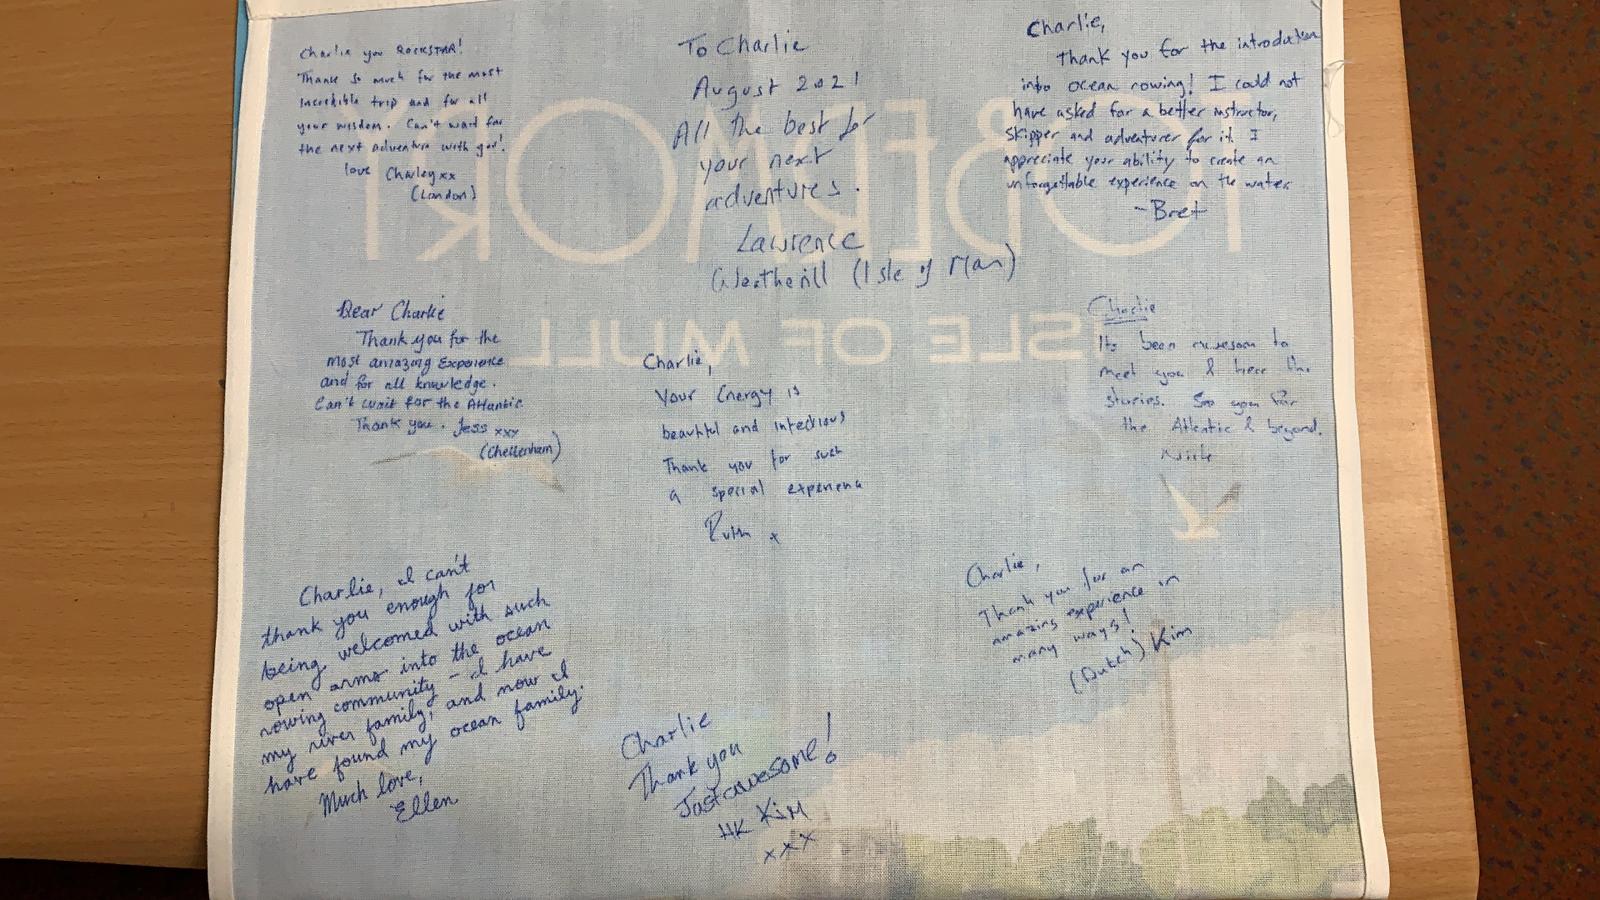 Charlie you ROCKSTAR!
Thanks so much for the most
incredible trip and for all
your wisdom. Can't wait for
the next adventure with you!
love Charley xx
(London)
To Charlie
August 2021
All the best for
your next
adventures.
Lawrence
Weatherill (Isle of Man)
Charlie,
Thank you for the introduction
into ocean rowing! I could not
have asked for a better instructor,
skipper and adventurer for it. I
appreciate your ability to create an
unforgettable experience on the water
- Bret
TOBERMORY
ISLE OF MULL
Dear Charlie
Thank you for the
most amazing Experience
and for all knowledge.
Can't wait for the Atlantic
Thank you. Jess xxx
(Cheltenham)
Charlie,
Your Energy is
beautiful and infectious
Thank you for such
a special experience
Ruth x
Charlie
Its been awesom to
meet you & hear the
stories. See you for
the Atlantic & beyond.
Charlie, I can't
thank you enough for
being welcomed with such
open arms into the ocean
rowing community - I have
my river family, and now I
have found my ocean family.
Much love,
Ellen
Charlie
Thank you
Just awesome!
HK Kim
xxx
Charlie,
Thank you for an
amazing experience in
many ways!
(Dutch) Kim